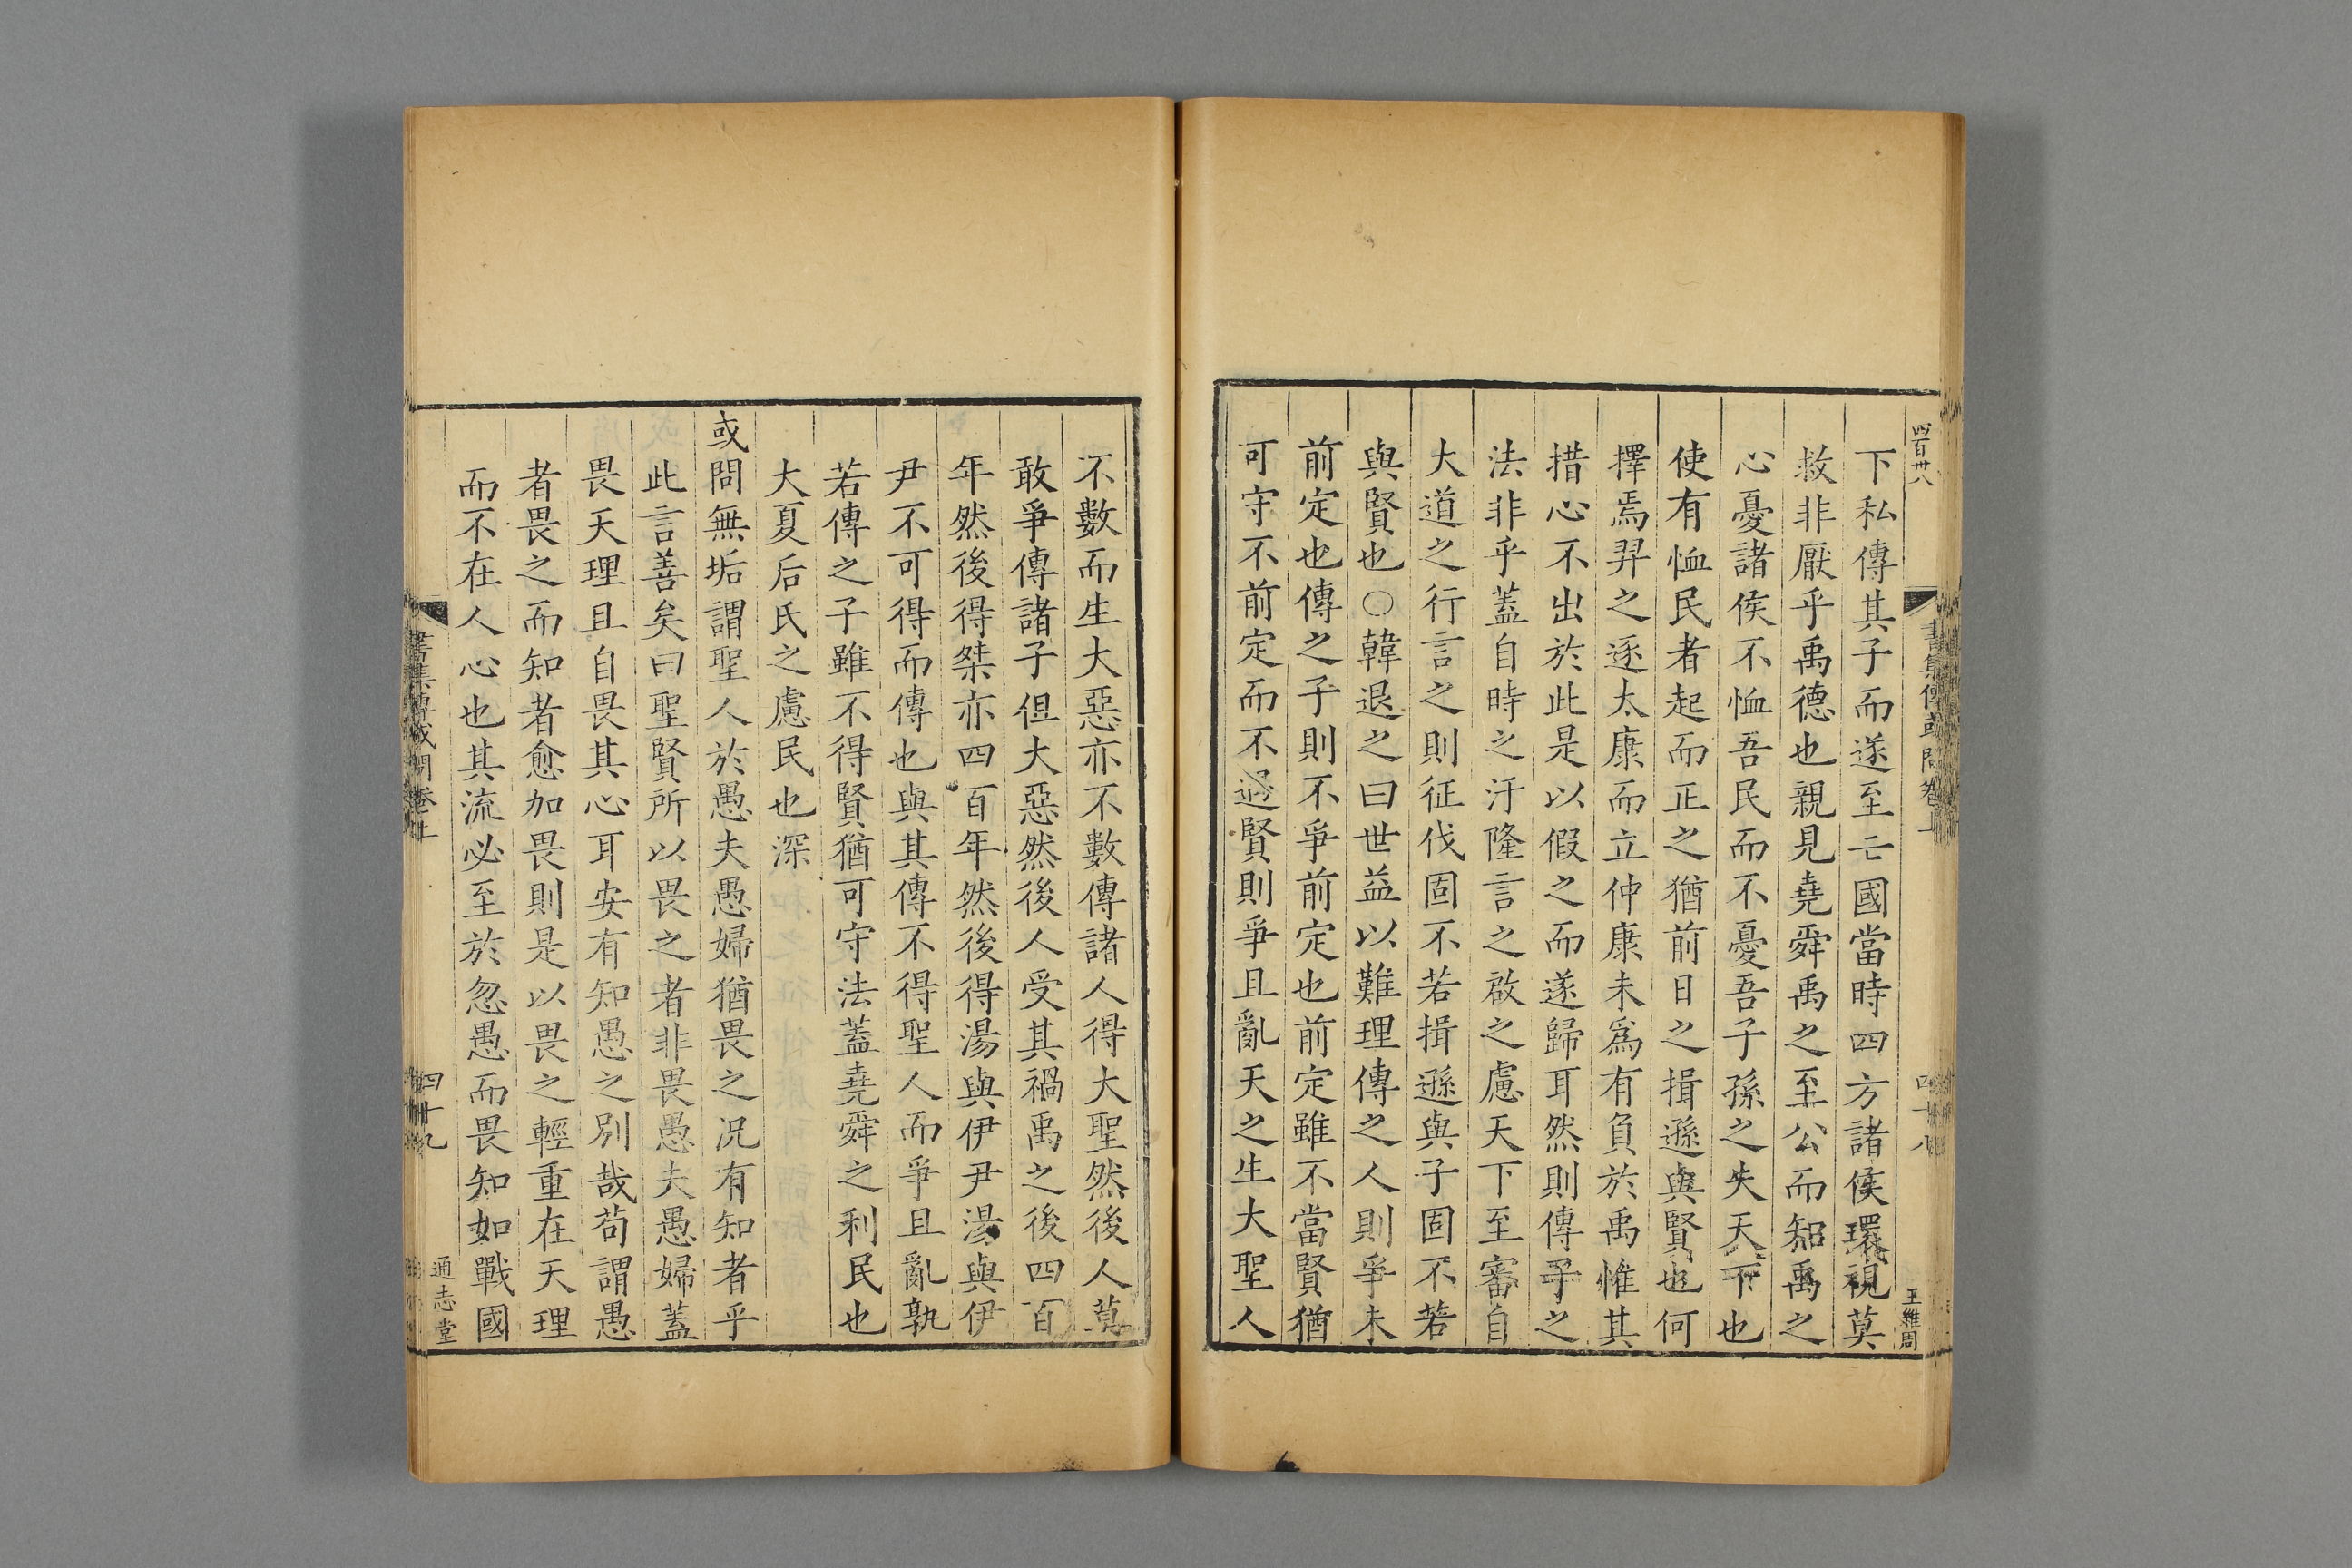 四百卅八
王維周
下私傳其子而遂至亡國當時四方諸侯環視莫
救非厭乎禹德也親見堯舜禹之至公而知禹之
心憂諸侯不恤吾民而不憂吾子孫之失天下也
使有恤民者起而正之猶前日之揖遜與賢也何
擇焉羿之逐太康而立仲康未爲有負於禹惟其
措心不出於此是以假之而遂歸耳然則傳子之
法非乎蓋自時之汙隆言之啟之慮天下至審自
大道之行言之則征伐固不若揖遜與子固不若
與賢也〇韓退之曰世益以難理傳之人則爭未
前定也傳之子則不爭前定也前定雖不當賢猶
可守不前定而不遇賢則爭且亂天之生大聖人
不數而生大惡亦不數傳諸人得大聖然後人莫
敢爭傳諸子但大惡然後人受其禍禹之後四百
年然後得桀亦四百年然後得湯與伊尹湯與伊
尹不可得而傳也與其傳不得聖人而爭且亂孰
若傳之子雖不得賢猶可守法蓋堯舜之利民也
大夏后氏之慮民也深
或問無垢謂聖人於愚夫愚婦猶畏之况有知者乎
此言善矣曰聖賢所以畏之者非畏愚夫愚婦蓋
畏天理且自畏其心耳安有知愚之別哉苟謂愚
者畏之而知者愈加畏則是以畏之輕重在天理
而不在人心也其流必至於忽愚而畏知如戰國
書集傳或問卷上
四十九
通志堂